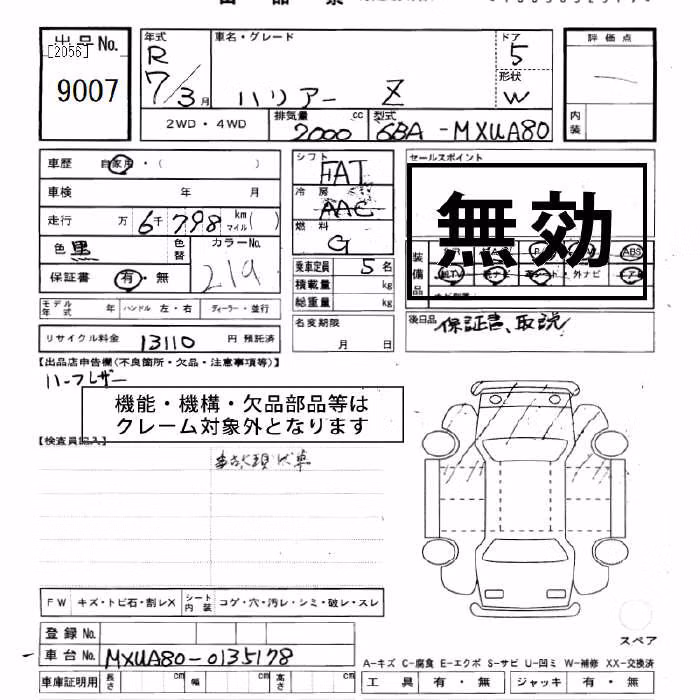 出品No.
[2056]
9007
年式
R
7/3月
車名・グレード
ハリアー Z
ドア
5
形状
W
評価点
内装
2WD・4WD
排気量
2000 cc
型式
6BA-MXUA80
車歴 自家用・( )
車検 年 月
走行 万 6千798 km マイル( )
色 黒 色替
カラーNo.
219
保証書 有・無
モデル年式 年 ハンドル 左・右 ディーラー・並行
リサイクル料金 13110 円 預託済
シフト
FAT
冷房
AAC
燃料
G
乗車定員 5 名
積載量 kg
総重量 kg
名変期限
月 日
セールスポイント
無効
装備品
ABS
後日品
保証書、取説
【出品店申告欄(不良箇所・欠品・注意事項等)】
ハーフレザー
機能・機構・欠品部品等は
クレーム対象外となります
【検査員記入】
事故現状車
FW キズ・トビ石・割レX シート内装 コゲ・穴・汚レ・シミ・破レ・スレ
登録No.
車台No. MXUA80-0135178
車庫証明用 長さ cm 幅 cm 高さ cm
スペア
A-キズ C-腐食 E-エクボ S-サビ U-凹ミ W-補修 XX-交換済
工具 有・無 ジャッキ 有・無